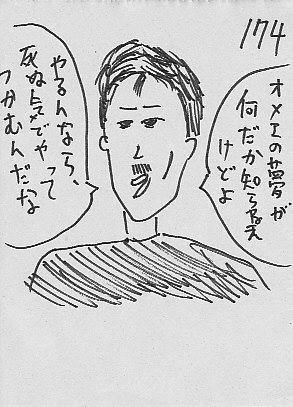 174
オメエの夢が
何だか知らねえ
けどよ
やるんなら、
死ぬ気でやって
つかむんだな